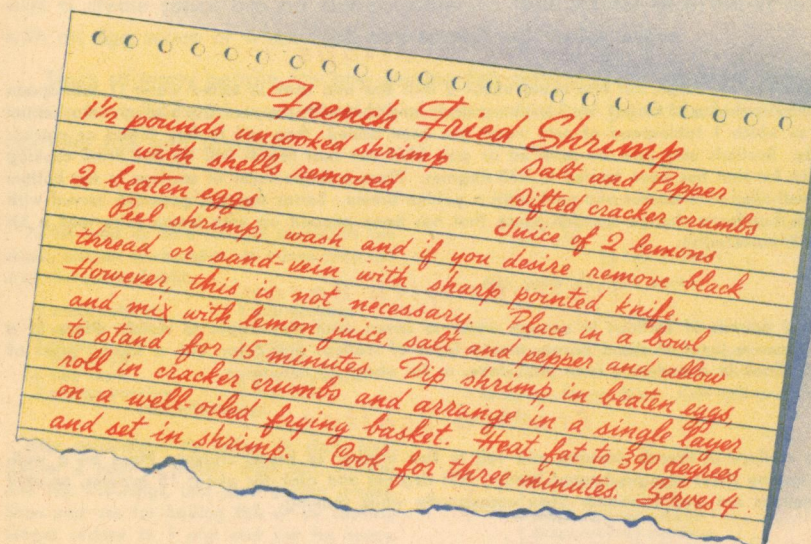 French Fried Shrimp
1½ pounds uncooked shrimp
with shells removed
2 beaten eggs
Salt and Pepper
Sifted cracker crumbs
Juice of 2 lemons
Peel shrimp, wash and if you desire remove black
thread or sand-vein with sharp pointed knife.
However, this is not necessary. Place in a bowl
and mix with lemon juice, salt and pepper and allow
to stand for 15 minutes. Dip shrimp in beaten eggs,
roll in cracker crumbs and arrange in a single layer
on a well-oiled frying basket. Heat fat to 390 degrees
and set in shrimp. Cook for three minutes. Serves 4